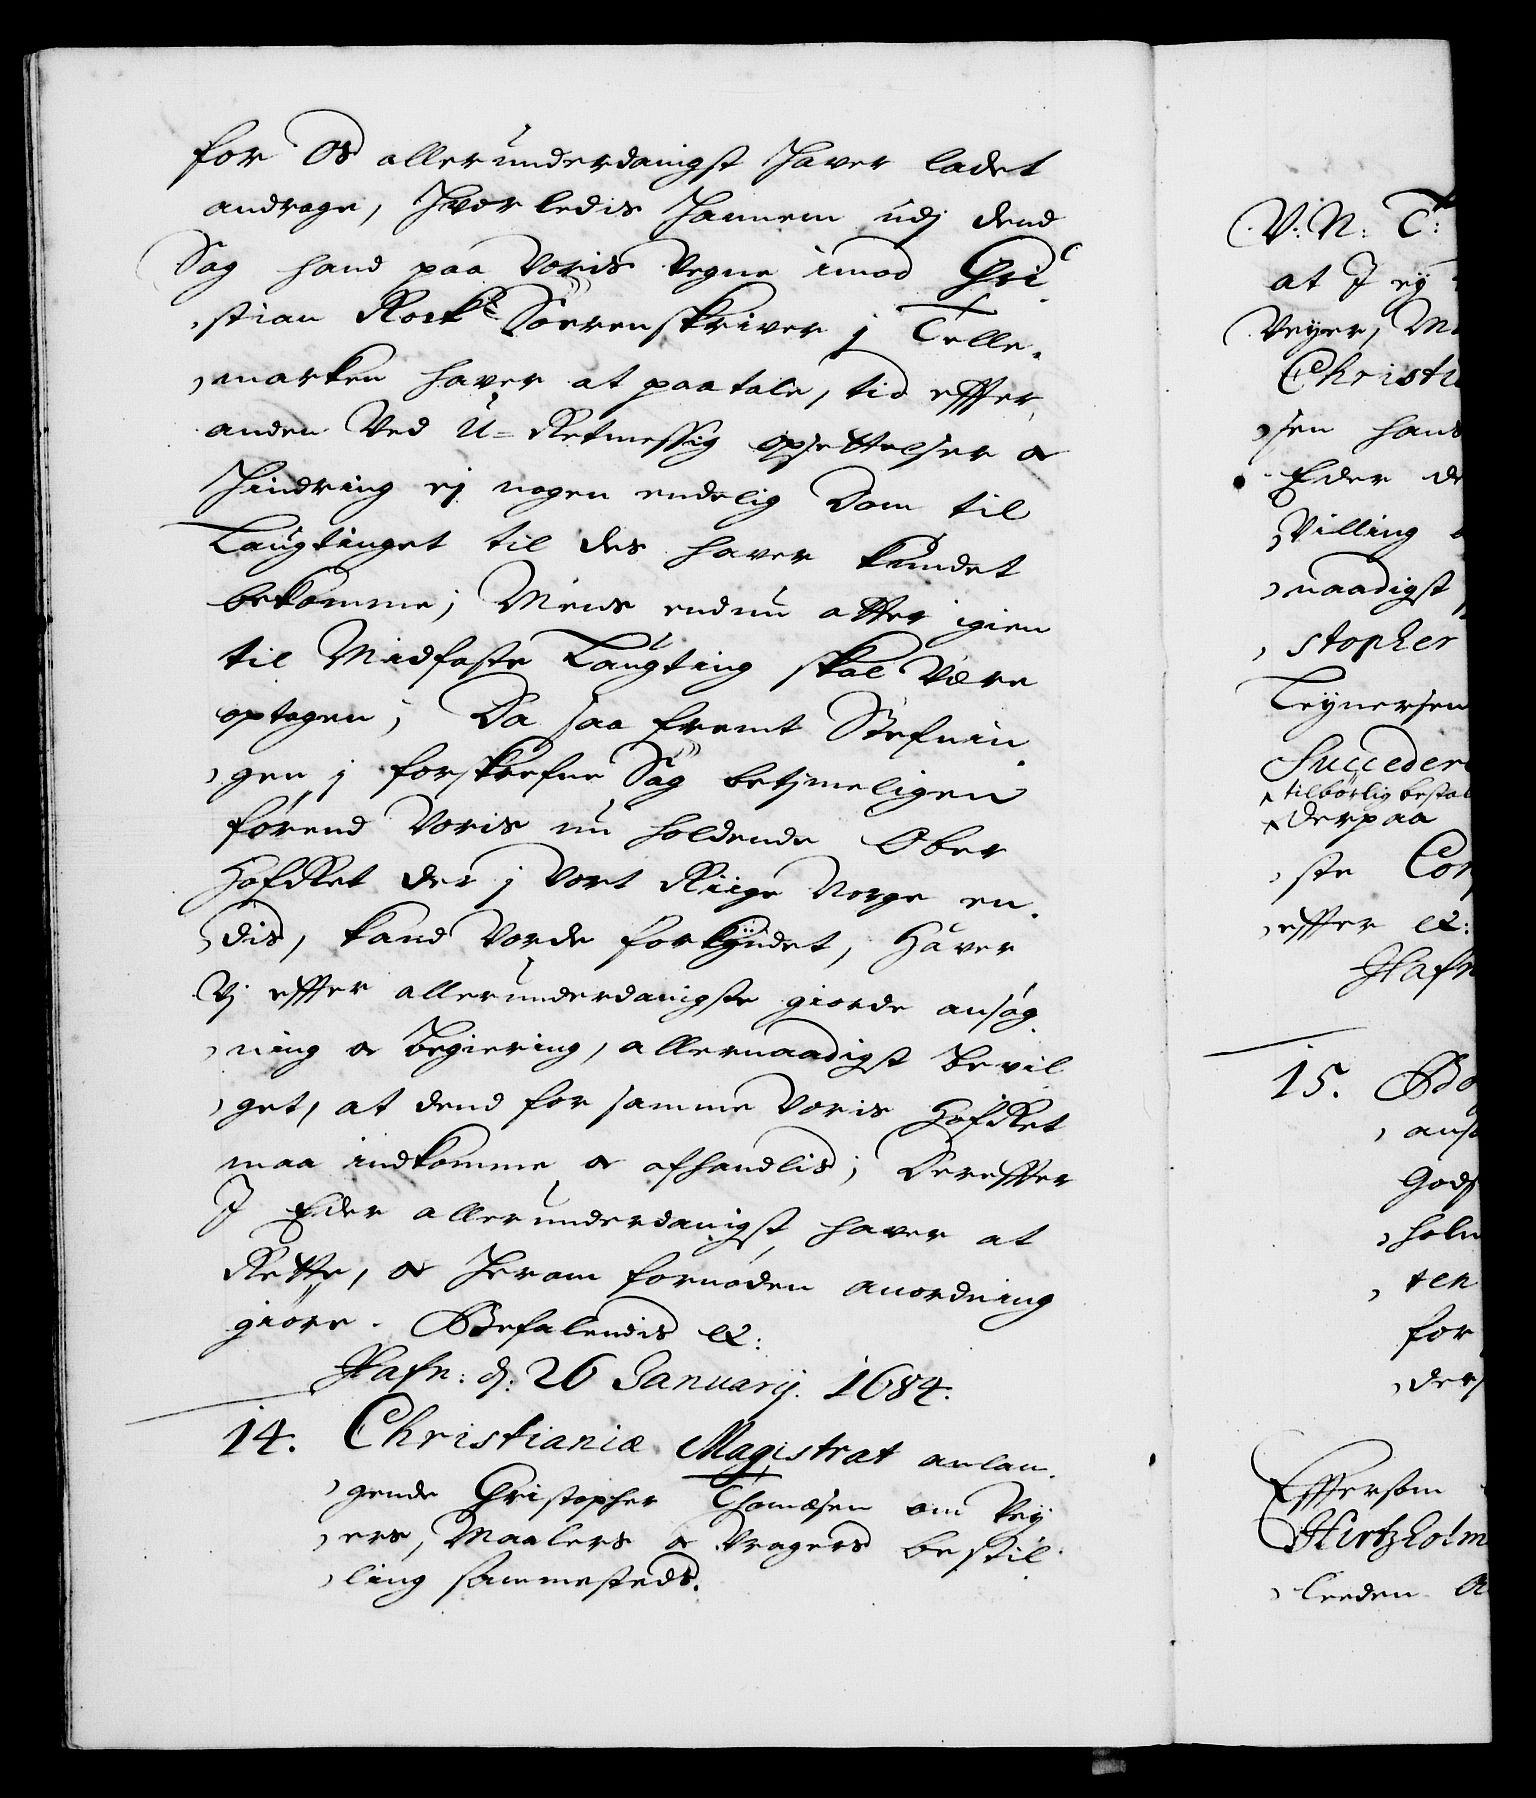 for Os allerunderdanigst haver ladet
andrage, hvorledis hannem udj dend
Sag hand paa Voris Vegne imod Chri
stian Rock Sorenskriver j Telle
marken haver at paatale, tid effter
anden Ved U-Retmessig opsettelser oc
hindring ej nogen endelig Dom til
Laugtinget til des haver kundet
bekomme; Mens endnu atter igien
til Midfaste Laugting skal Være
optagen; Da saa fremt Stefnin
gen j forskrefne Sag betjmeligen
förend Voris nu holdende Ober
HofRet der j Vort Riige Norge en
dis, kand Vorde forkyndet, Haver
Vj effter allerunderdanigste giorde ansøg
ning oc begiering, allernaadigst bevil
get, at dend for samme Voris HofRet
maa indkomme oc afhandlis; Dereffter
J Eder allerunderdanigst haver at
Rette, oc herom fornøden anordning
giöre. Befalendis etc:
Hafn: d: 26 Januarij. 1684.
14. Christianiæ Magistrat anlan
gende Christopher Thomæsen om Vey
ers, Maalers oc Vragers bestil
ling sammesteds.
V: N: T:
at J ey
Veyer, M
Christi
sen hans
Eder de
Villing
naadigst
stopher
Teynersen
Succeder
tilbörlig bestal
derpaa
ste Con
effter etc:
Hafn
15. Bo
ans
Gods
holm
ten
for
ders
Efftersom
Hirtzholm
leeden